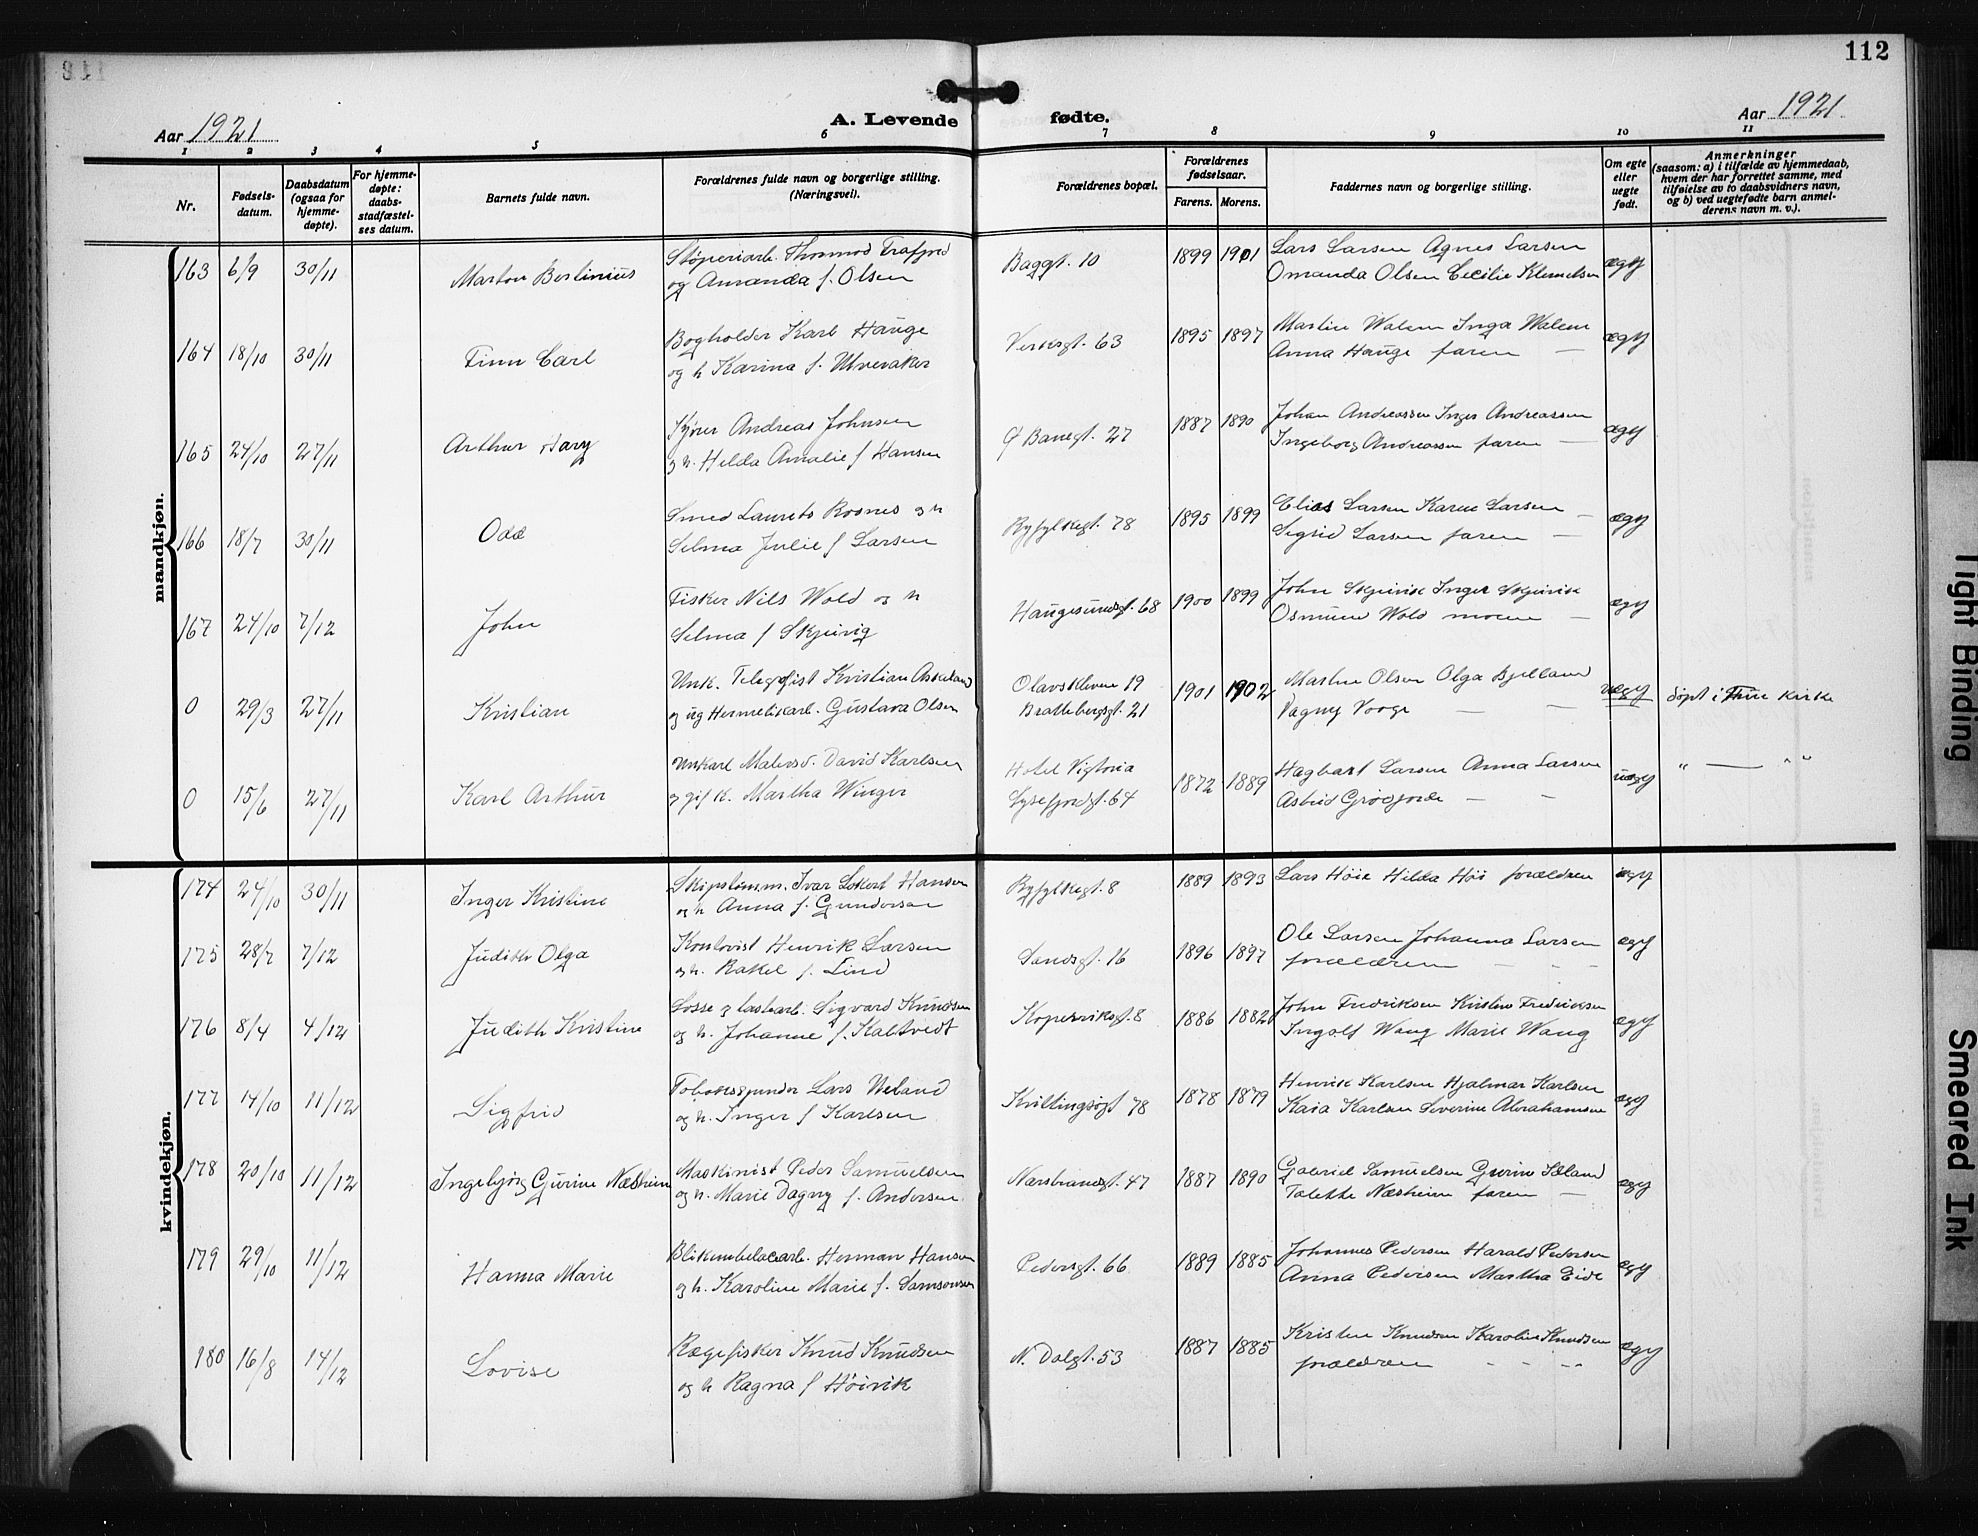 112
Aar 1921
A. Levende fødte.
Aar 1921
1 2 3 4 5 6 7 8 9 10 11
Nr.
Fødsels-
datum.
Daabsdatum
(ogsaa for
hjemme-
døpte).
For hjemme-
døpte:
daabs-
stadfæstel-
ses datum.
Barnets fulde navn.
Forældrenes fulde navn og borgerlige stilling.
(Næringsvei).
Forældrenes bopæl.
Forældrenes
fødselsaar.
Farens. Morens.
Faddernes navn og borgerlige stilling.
Om egte
eller
uegte
født.
Anmerkninger
(saasom: a) i tilfælde av hjemmedaab,
hvem der har forrettet samme, med
tilføielse av to daabsvidners navn,
og b) ved uegtefødte barn anmel-
derens navn m. v.).
mandkjøn.
163 6/9 30/11 Marton Bertinius
Støperiarb. Thormod Trafjord
og Amanda f. Olsen
Baggt. 10 1899 1901
Lars Larsen Agnes Larsen
Omanda Olsen Cecilie Klemetsen
164 18/10 30/11 Finn Carl
Bogholder Karl Hauge
og h Karina f.
Verksgt. 63 1895 1897
Martin Walem Inga Walem
Anna Hauge faren —
165 24/10 27/11 Arthur
Kjører Andreas Johnsen
og h. Hilda Amalie f Hansen
Ø Banegt. 27 1887 1890
Johan Andreassen Inger Andreassen
Ingeborg Andreassen faren —
166 18/7 30/11 Odd
Smed Laurits Rosnes og h
Selma Julie f Larsen
Ryfylkegt. 78 1895 1899
Elias Larsen Karen Larsen —
Sigrid Larsen faren —
167 24/10 7/12 John
Fisker Nils Wold og h
Selma f Skjeivig
Haugesundsgt. 68 1900 1899
John Skjeivik Inger Skjeivik
Osmund Wold moren —
0 29/3 27/11 Kristian
Unk. Kristian
og ug Hermetikarb. Gustava Olsen
Olavskleven 19
Brattebergsgt. 21
1901 1902
Martin Olsen Olga Bjelland
Dagny Vorge — —
uegt
døpt i Frue kirke
0 15/6 27/11 Karl Arthur
Unkarl Malersv. David Karlsen
og gift k. Martha Winger
Hotel Vigtoria
Lysefjordgt. 64
1872 1889
Hagbart Larsen Anna Larsen
Astrid — —
" — " "
kvindekjøn.
174 24/10 30/11 Inger Kristine
Skipstømm. Ivar Lokert Hansen
og h Anna f. Gundersen
Ryfylkegt. 8 1889 1893
Lars Höie Hilda Höi forældren
175 28/7 7/12 Judith Olga
Kontorist Henrik Larsen
og h. Rakel f. Lind
Sandsgt. 16 1896 1897
Ole Larsen Johanna Larsen
forældren — - -
176 8/4 4/12 Judith Kristine
Losse og lastearb. Sigvard Knudsen
og h. Johanne f. Kaltvedt
Kopervikgt. 8 1886 1882
John Fredriksen Kirstine Fredriksen
Ingolf Wang Marie Wang
177 14/10 11/12 Sigfrid
Tobaksspinder Lars Meland
og h. Inger f Karlsen
Kvittingsøgt 78 1878 1879
Henrik Karlsen Hjalmar Karlsen
Kaia Karlsen Severine Abrahamsen
178 20/10 11/12 Ingebjørg Gurine Næsheim
Maskinist Peder Samuelsen
og h. Marie Dagny f. Andersen
Nærstrandgt. 47 1887 1890
Gabriel Samuelsen Gurine Sæland
Talette Næsheim faren —
179 29/10 11/12 Hanna Marie
Blikembalagearb. Herman Hansen
og h. Karoline Marie f. Samsonsen
Pedersgt. 66 1889 1885
Johannes Pedersen Harald Pedersen
Anna Pedersen Martha Eide
180 16/8 14/12 Lovise
Rægefisker Knud Knudsen
og h Ragna f Höivik
N. Dalgt. 53 1887 1885
Kristen Knudsen Karoline Knudsen
forældren - - - -
Tight Binding
Smeared Ink